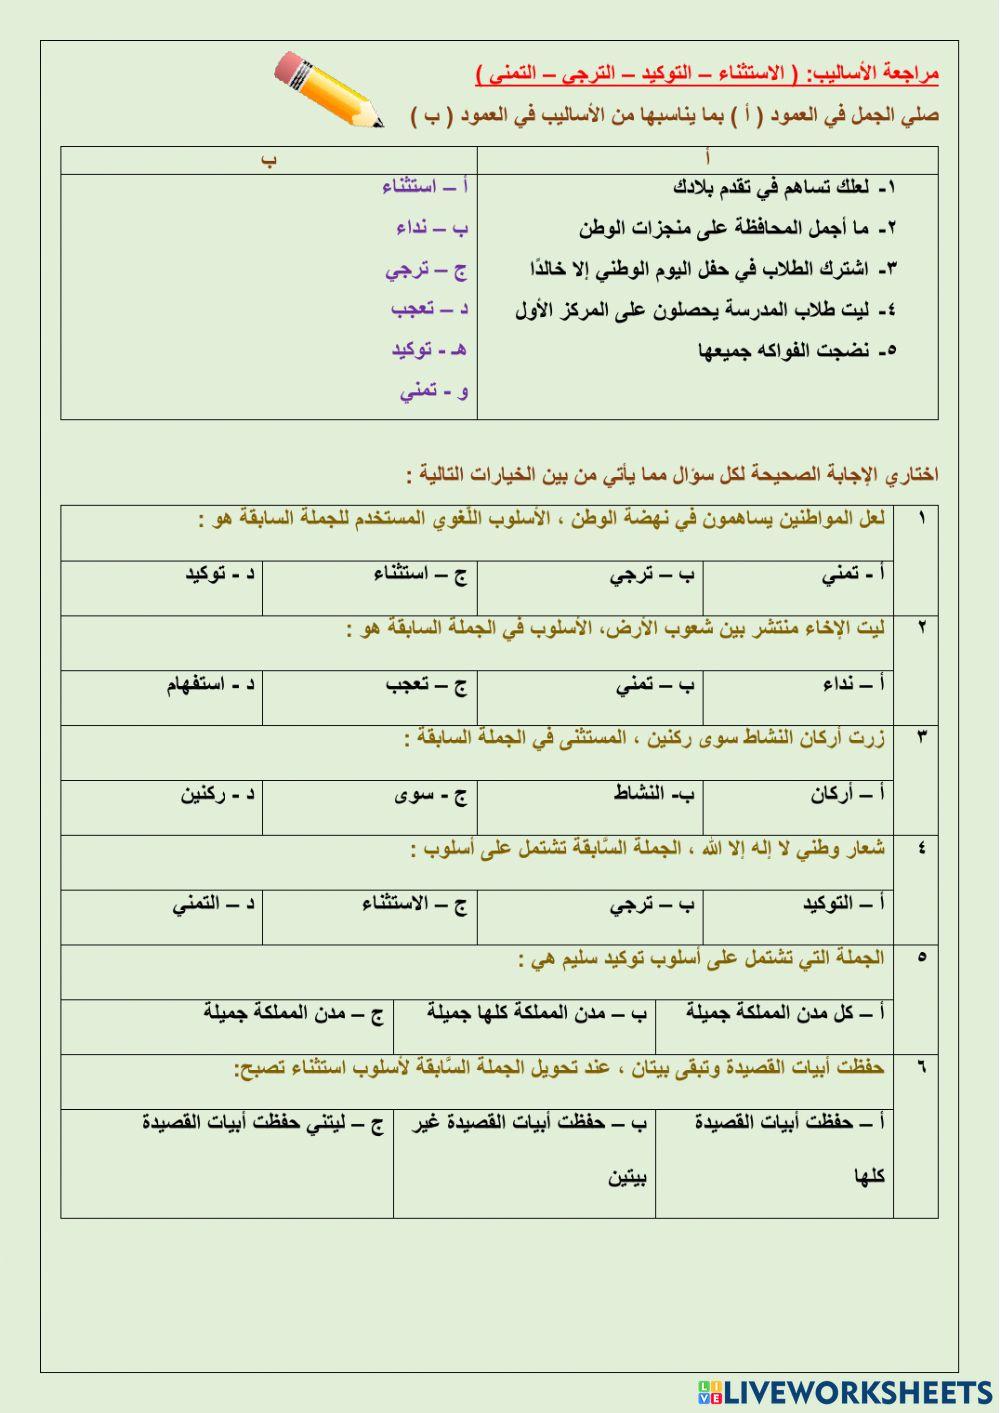 مراجعة الأساليب: ( الاستثناء – التوكيد – الترجي – التمني )
صلي الجمل في العمود ( أ ) بما يناسبها من الأساليب في العمود ( ب )
أ
ب
١- لعلك تساهم في تقدم بلادك
٢- ما أجمل المحافظة على منجزات الوطن
٣- اشترك الطلاب في حفل اليوم الوطني إلا خالدًا
٤- ليت طلاب المدرسة يحصلون على المركز الأول
٥- نضجت الفواكه جميعها
أ – استثناء
ب – نداء
ج – ترجي
د – تعجب
هـ - توكيد
و - تمني
اختاري الإجابة الصحيحة لكل سؤال مما يأتي من بين الخيارات التالية :
١ لعل المواطنين يساهمون في نهضة الوطن ، الأسلوب اللُّغوي المستخدم للجملة السابقة هو :
أ - تمني ب – ترجي ج – استثناء د - توكيد
٢ ليت الإخاء منتشر بين شعوب الأرض، الأسلوب في الجملة السابقة هو :
أ – نداء ب – تمني ج – تعجب د - استفهام
٣ زرت أركان النشاط سوى ركنين ، المستثنى في الجملة السابقة :
أ – أركان ب- النشاط ج - سوى د - ركنين
٤ شعار وطني لا إله إلا الله ، الجملة السَّابقة تشتمل على أسلوب :
أ – التوكيد ب – ترجي ج – الاستثناء د – التمني
٥ الجملة التي تشتمل على أسلوب توكيد سليم هي :
أ – كل مدن المملكة جميلة ب – مدن المملكة كلها جميلة ج – مدن المملكة جميلة
٦ حفظت أبيات القصيدة وتبقى بيتان ، عند تحويل الجملة السَّابقة لأسلوب استثناء تصبح:
أ – حفظت أبيات القصيدة ب – حفظت أبيات القصيدة غير ج – ليتني حفظت أبيات القصيدة
كلها بيتين
LIVE LIVEWORKSHEETS